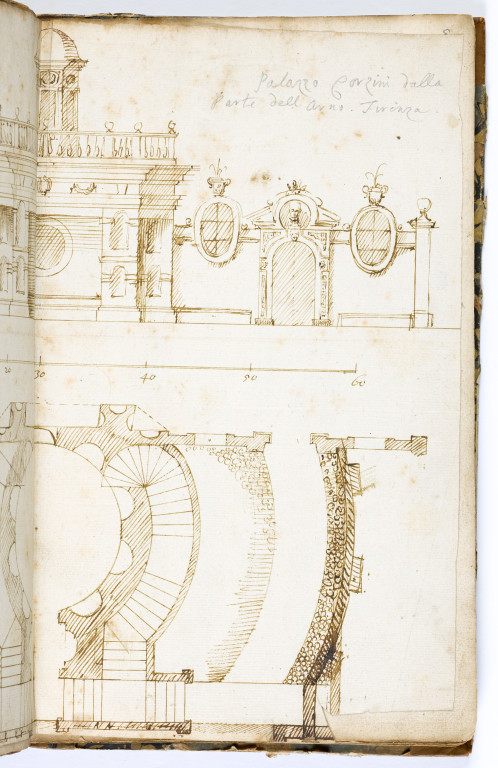 5
Palazzo Corzini dalla
Parte dell Arno. Firenza.
20 30 40 50 60